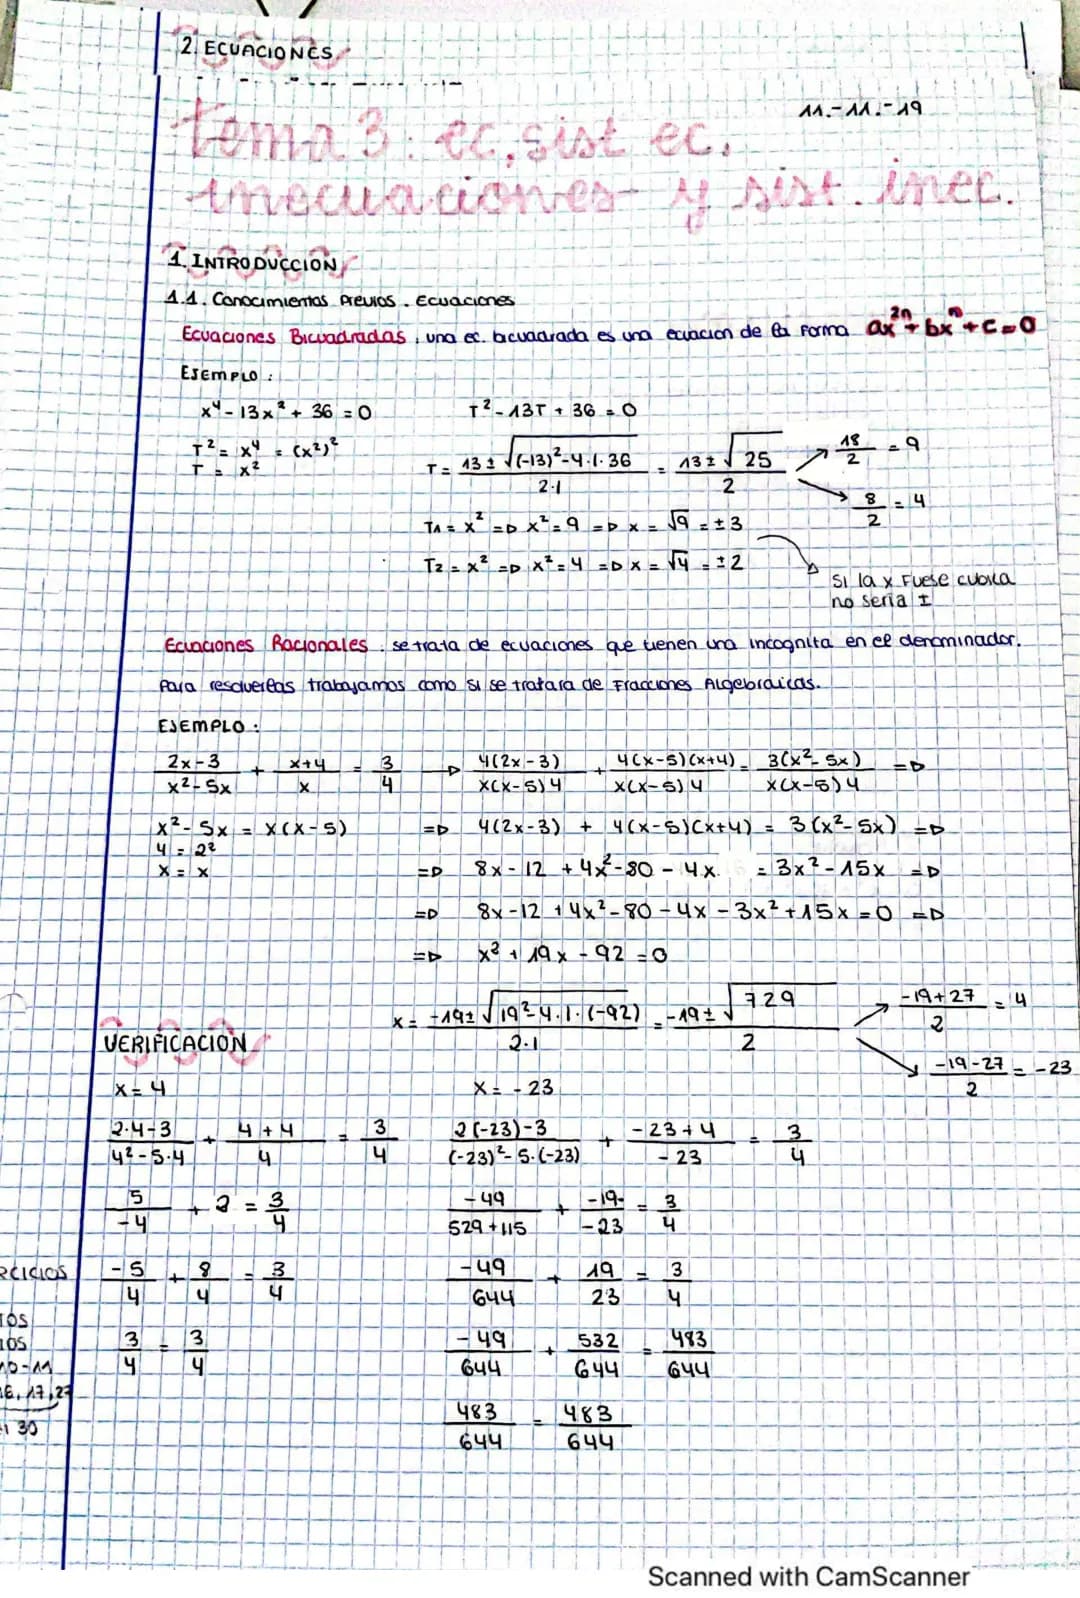 2. ECUACIONES
11.-11.-19
tema 3: ec, sist ec.
inecuaciones y sist. inec.
1. INTRODUCCION
1.1. Conocimientos Previos. Ecuaciones
Ecuaciones Bicuadradas, una ec. bicuadrada es una ecuacion de la Forma ax²ⁿ + bxⁿ + c = 0
EJEMPLO:
x⁴ - 13x² + 36 = 0    T² - 13T + 36 = 0
T² = x⁴ = (x²)²
T = x²
T = (13 ± √((-13)² - 4·1·36))/(2·1) = (13 ± √25)/2 ↗ 18/2 = 9
↘ 8/2 = 4
T1 = x² => x² = 9 => x = √9 = ±3
T2 = x² => x² = 4 => x = √4 = ±2
Si la x Fuese cubica
no seria ±
Ecuaciones Racionales. se trata de ecuaciones que tienen una incognita en el denominador.
Para resolverlas trabajamos como si se tratara de Fracciones Algebraicas.
EJEMPLO:
(2x-3)/(x²-5x) + (x+4)/x = 3/4 => 4(2x-3)/(x(x-5)4) + 4(x-5)(x+4)/(x(x-5)4) = 3(x²-5x)/(x(x-5)4) =>
x² - 5x = x(x-5)    => 4(2x-3) + 4(x-5)(x+4) = 3(x²-5x) =>
4 = 2²
x = x    => 8x - 12 + 4x² - 80 - 4x = 3x² - 15x =>
=> 8x - 12 + 4x² - 80 - 4x - 3x² + 15x = 0 =>
=> x² + 19x - 92 = 0
x = (-19 ± √(19² - 4·1·(-92)))/(2·1) = (-19 ± √729)/2 ↗ (-19+27)/2 = 4
↘ (-19-27)/2 = -23
VERIFICACION
x = 4    x = -23
(2·4-3)/(4²-5·4) + (4+4)/4 = 3/4    (2(-23)-3)/((-23)²-5·(-23)) + (-23+4)/(-23) = 3/4
5/(-4) + 2 = 3/4    -49/(529+115) + -19/-23 = 3/4
-5/4 + 8/4 = 3/4    -49/644 + 19/23 = 3/4
3/4 = 3/4    -49/644 + 532/644 = 483/644
483/644 = 483/644
RCICIOS
TOS
10-11
16, 17, 27
30
Scanned with CamScanner